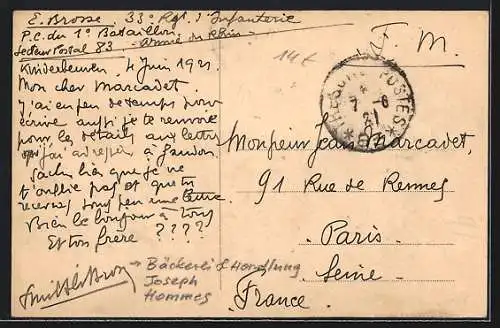 E. Brosse, 33e Rgt. d'Infanterie
P.C. du 1er Bataillon.
Secteur Postal 83. - Armée du Rhin -
14 €
F. M.
TRESOR ET POSTES
7 - 6
21
* 83 *
4 Juin 1921.
Mon cher Marcadet,
J'ai peu de temps pour
écrire aussi je te renvoie
pour les détails aux lettres
que j'ai adressées à
Sache bien que je ne
t'oublie pas et que tu
recevras sous peu une lettre.
Bien le bonjour à tous
Et ton frère ????
Monsieur Jean Marcadet,
91 Rue de Rennes
- Paris -
Seine -
France.
→ Bäckerei & Handlung
Joseph
Hommes